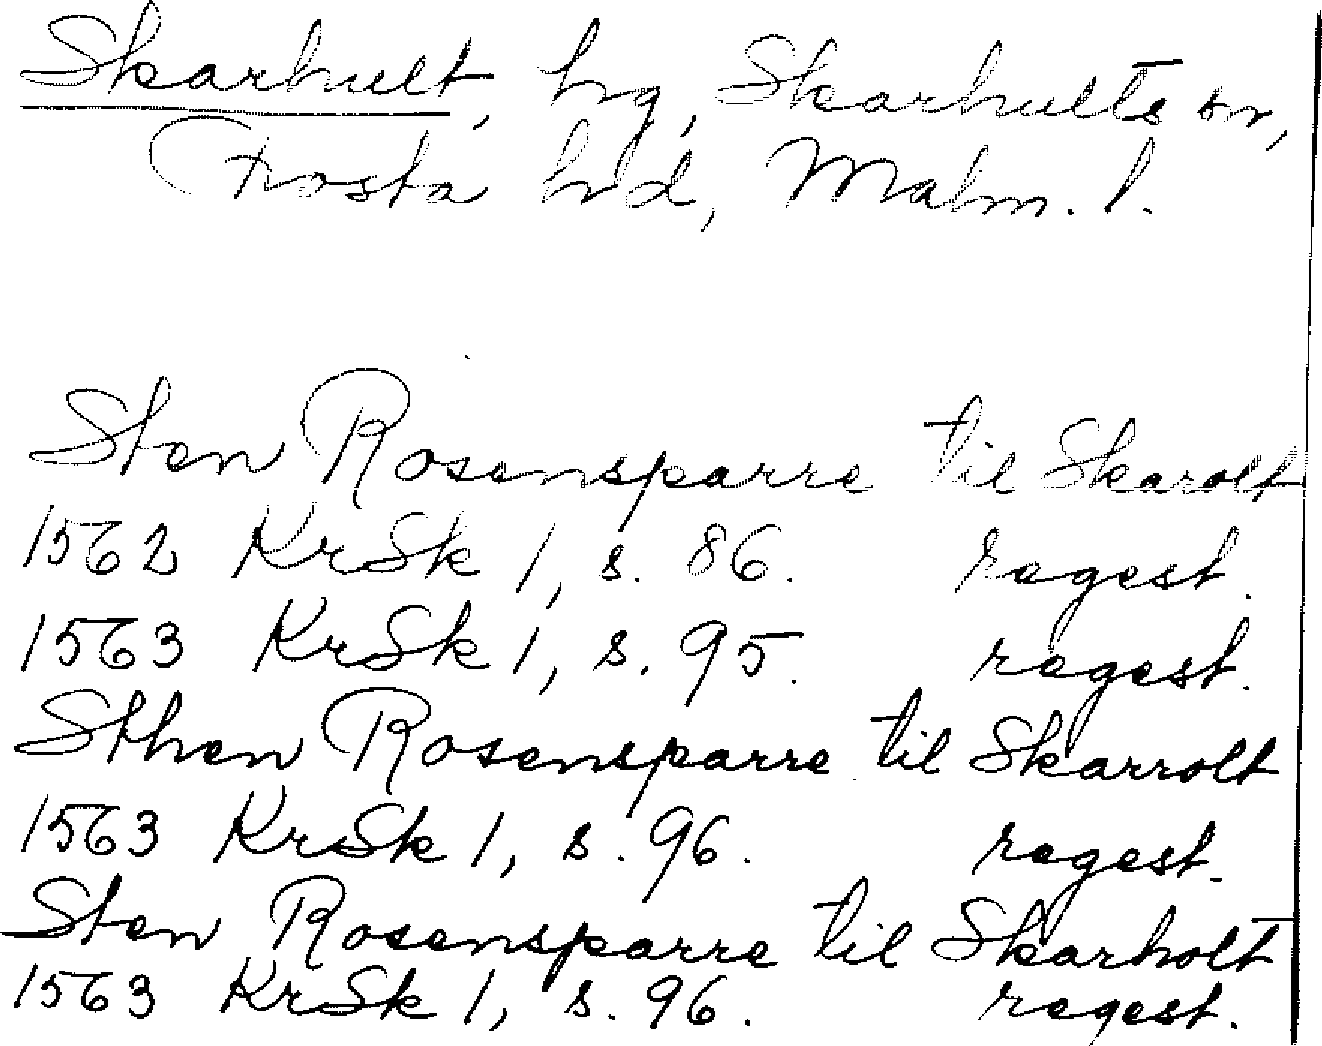 Skarhult, hg, Skarhults sn,
Frosta hd, Malm. l.
Sten Rosensparre til Skarolt
1562 KrSk 1, s. 86. regest.
1563 KrSk 1, s. 95. regest.
Sthen Rosensparre til Skarrolt
1563 KrSk 1, s. 96. regest.
Sten Rosensparre til Skarholt
1563 KrSk 1, s. 96. regest.